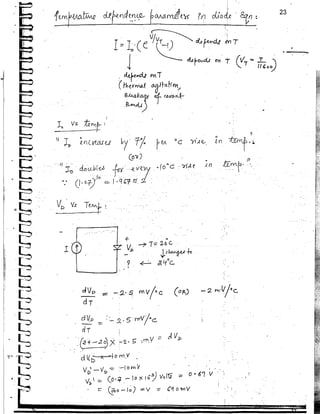 23
Temperature dependence parameters in diode eqn :
I = I₀ (e^{V/V_T} -1)
depends on T
depends on T (V_T = T/11600)
depends on T
(thermal agitation,
Breakage of covant-
Bonds)
I₀ Vs temp :
" I₀ increases by 7% per °C rise in temp."
(or)
" I₀ doubles for every 10°C rise in temp "
∵ (1.07)^{10} = 1.967 ≈ 2
V_D Vs Temp :
I
+
V_D → T = 20°C
↓ changes to
? ← 24°C
-
dV_D/dT = -2.5 mV/°C (OR) -2 mV/°C
dV_D/dT = -2.5 mV/°C
(24-20) × -2.5 mV = dV_D
dV_D = -10 mV
V_D' - V_D = -10mV
V_D' = (0.7 - 10×10⁻³) Volts = 0.69 V
= (700-10) mV = 690mV